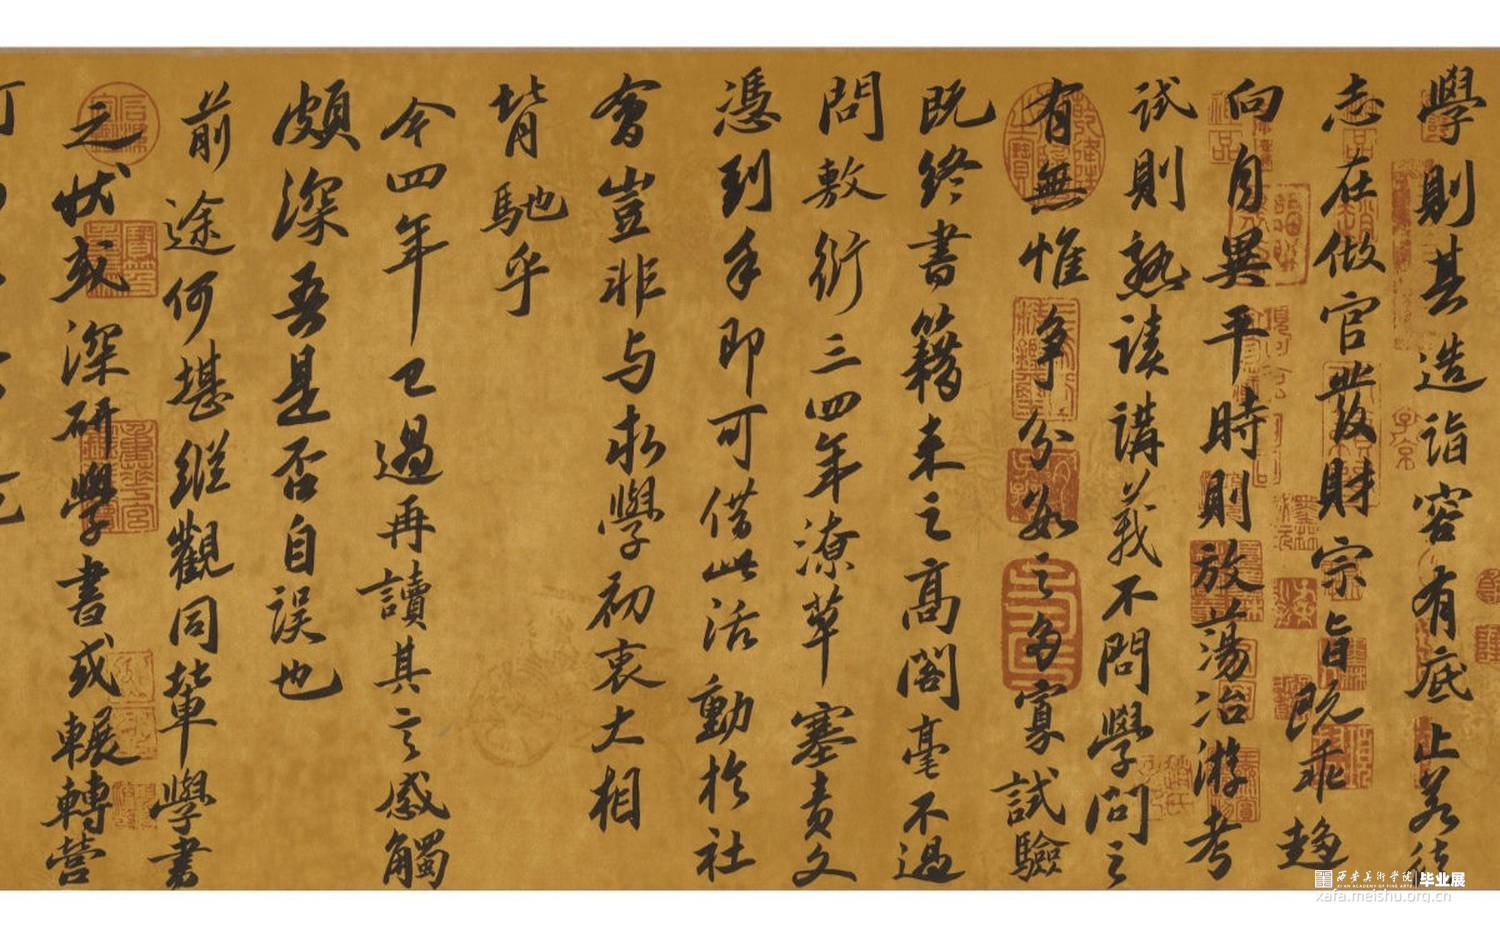 學則其造詣容有底止若徒
志在做官發財宗旨既乖趨
向自異平時則放蕩冶游考
試則熟讀講義不問學問之
有無惟爭分數之多寡試驗
既終書籍束之高閣毫不過
問敷衍三四年潦草塞責文
憑到手即可借此活動於社
會豈非與求學初衷大相
背馳乎
今四年已過再讀其言感觸
頗深吾是否自誤也
前途何堪縱觀同輩學書
之狀或深研學書或輾轉營
西安美術學院 毕业展
XI'AN ACADEMY OF FINE ARTS
xafa.meishu.org.cn